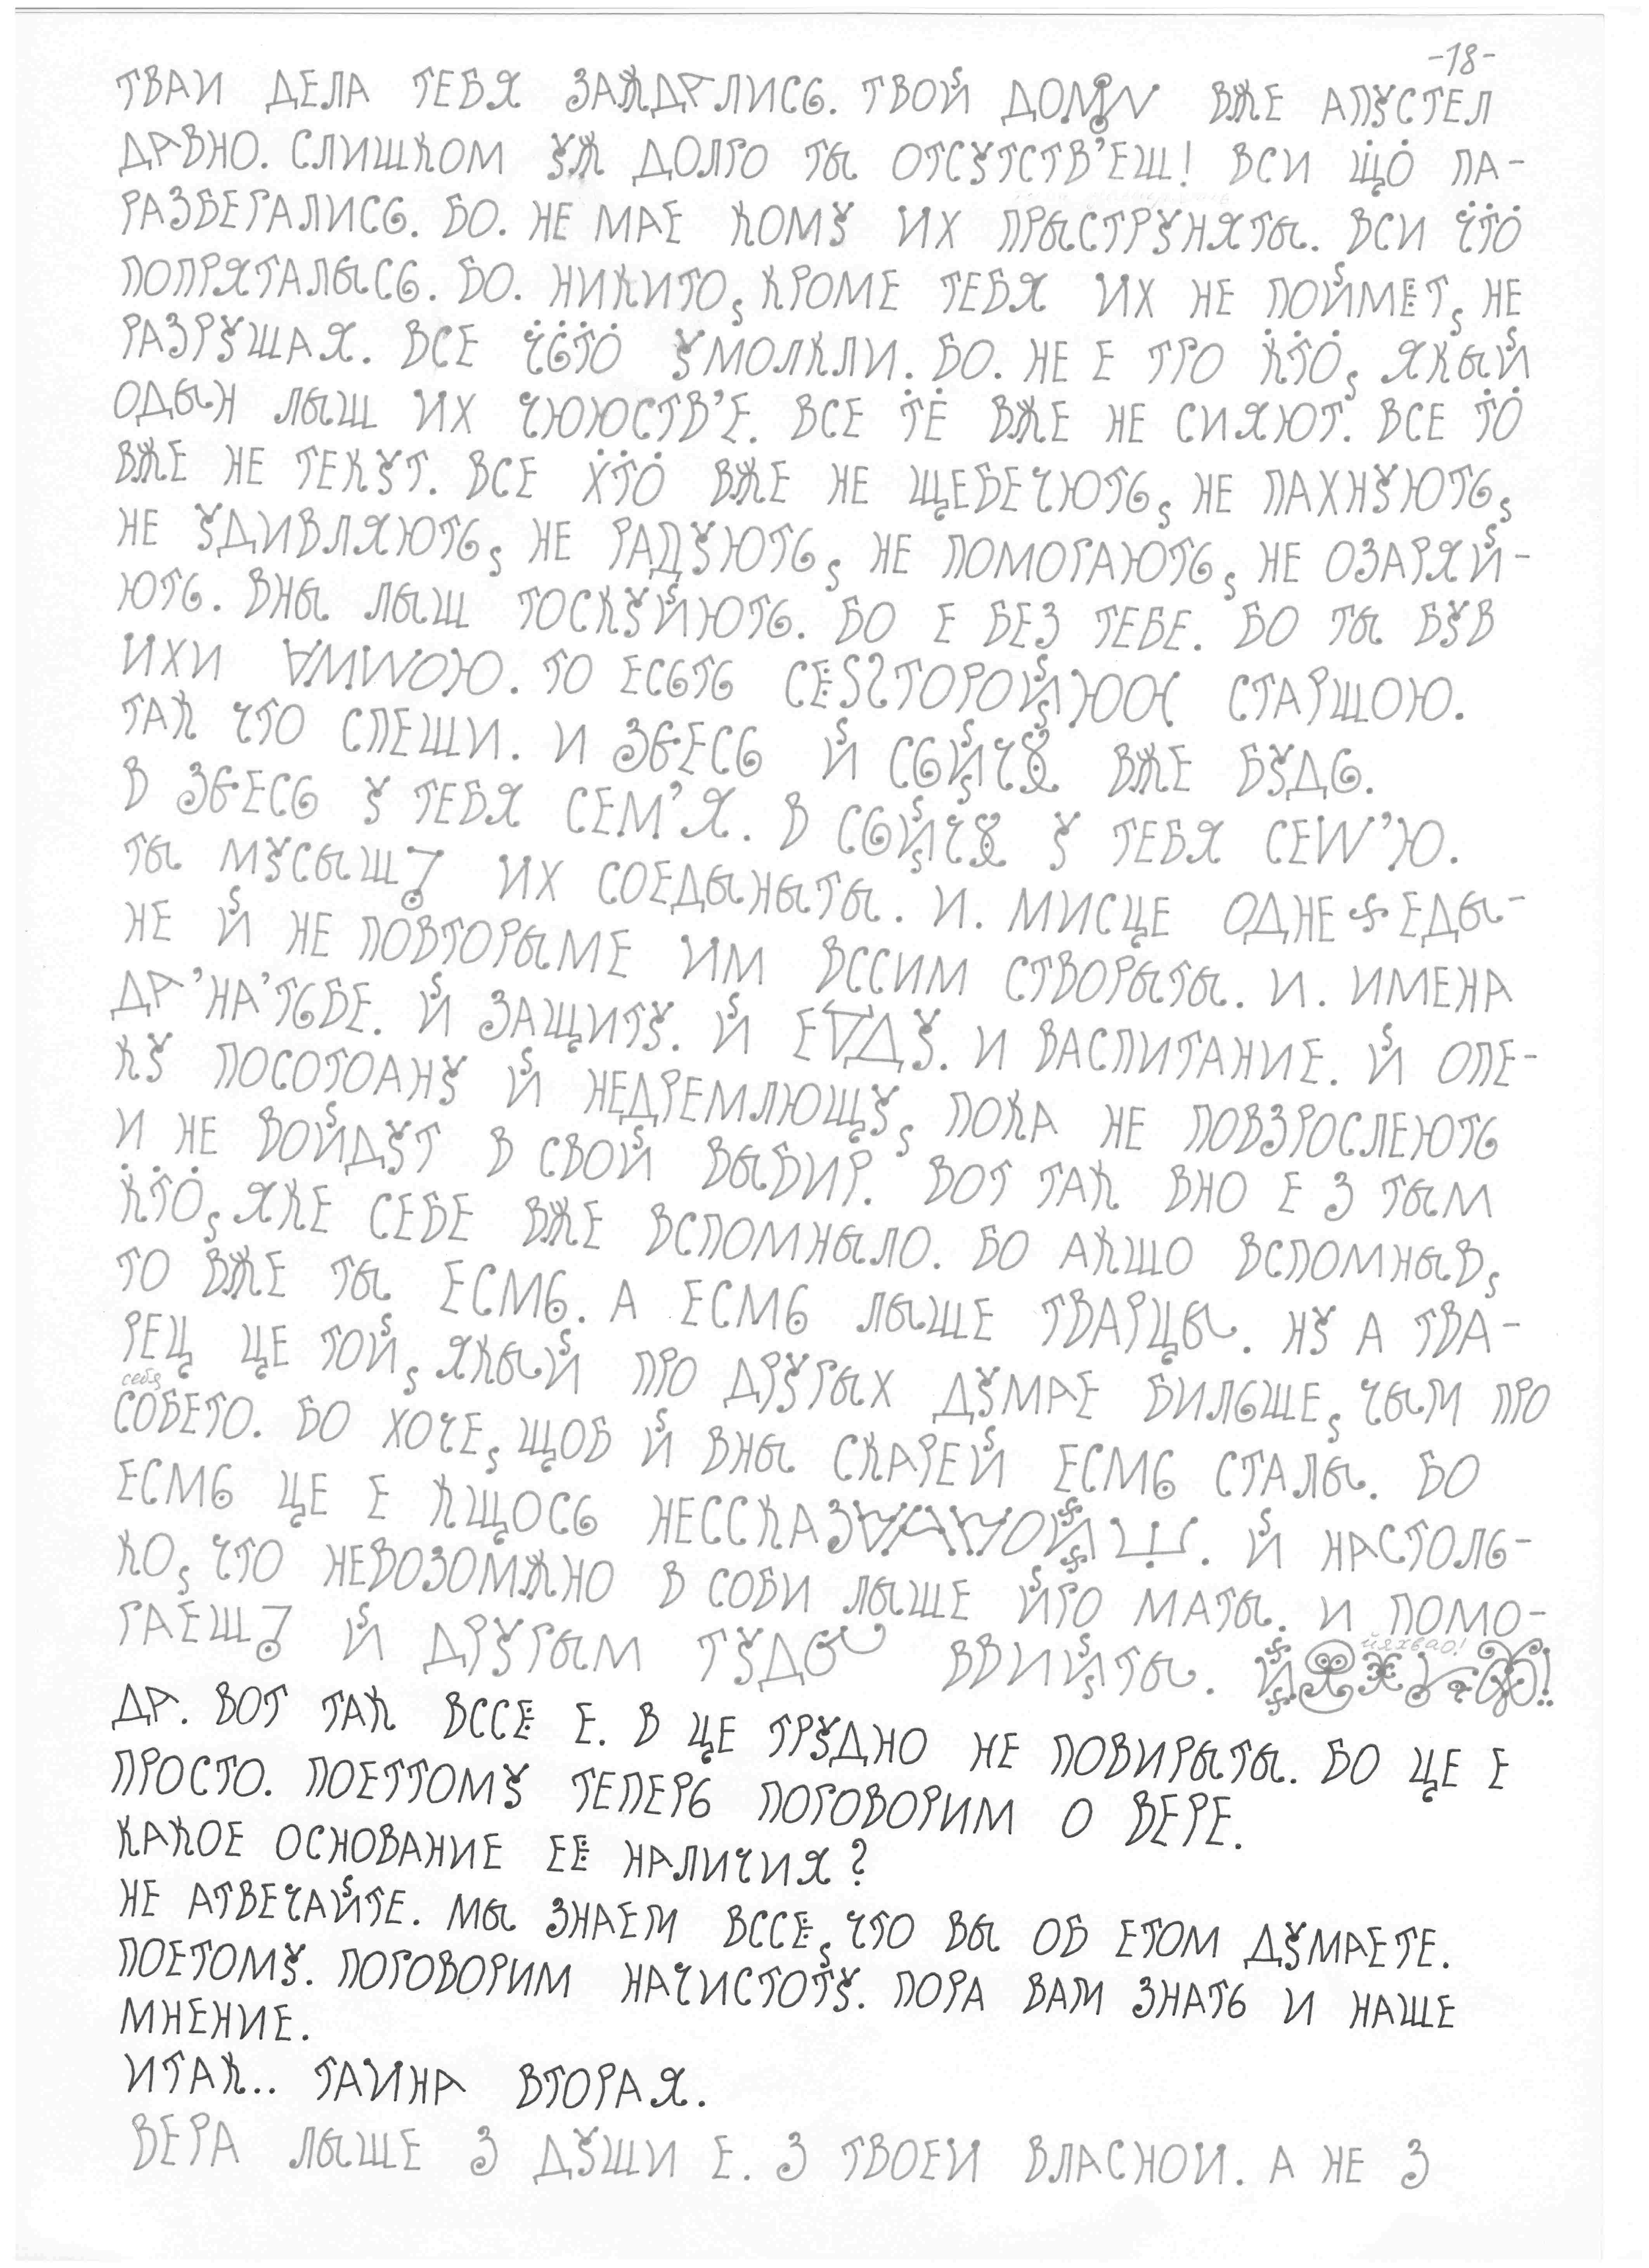 -18-
ТВАИ ДЕЛА ТЕБЯ ЗАЖДАЛИСЬ. ТВОЙ ВЖЕ АПУСТЕЛ
ДАВНО. СЛИШКОМ УЖ ДОЛГО ТЫ ОТСУТСТВ'ЕШ! ВСИ ЩО ПА-
РАЗБЕГАЛИСЬ. БО. НЕ МАЕ КОМУ ИХ ПРЫСТРУНЯТЫ. ВСИ ЧТО
ПОПРЯТАЛЫСЬ. БО. НИКИТО, КРОМЕ ТЕБЯ ИХ НЕ ПОЙМЕТ, НЕ
РАЗРУШАЯ. ВСЕ ЧЬТО УМОЛКЛИ. БО. НЕ Е ТГО КТО, ЯКЫЙ
ОДЫН ЛЫШ ИХ ЧЮЮСТВ'Е. ВСЕ ТЕ ВЖЕ НЕ СИЯЮТ. ВСЕ ТО
ВЖЕ НЕ ТЕКУТ. ВСЕ ХТО ВЖЕ НЕ ЩЕБЕЧЮТЬ, НЕ ПАХНУЮТЬ,
НЕ УДИВЛЯЮТЬ, НЕ РАДУЮТЬ, НЕ ПОМОГАЮТЬ, НЕ ОЗАРЯЙ-
ЮТЬ. ВНЫ ЛЫШ ТОСКУЙЮТЬ. БО Е БЕЗ ТЕБЕ. БО ТЫ БУВ
ИХИ ТО ЕСЬТЬ СТАРШОЮ.
ТАК ЧТО СПЕШИ. И Й ВЖЕ БУДЬ.
В У ТЕБЯ СЕМ'Я. В У ТЕБЯ
ТЫ МУСЫШ ИХ СОЕДЫНЫТЫ. И. МИСЦЕ ОДНЕ ЕДЫ-
НЕ Й НЕ ПОВТОРЫМЕ ИМ ВССИМ СТВОРЫТЫ. И. ИМЕНА
ДА'НА'ТЬБЕ. Й ЗАЩИТУ. Й И ВАСПИТАНИЕ. Й ОПЕ-
КУ ПОСОТОАНУ Й НЕДРЕМЛЮЩУ, ПОКА НЕ ПОВЗРОСЛЕЮТЬ
И НЕ ВОЙДУТ В СВОЙ ВЫБИР. ВОТ ТАК ВНО Е З ТЫМ
КТО, ЯКЕ СЕБЕ ВЖЕ ВСПОМНЫЛО. БО АКЩО ВСПОМНЫВ,
ТО ВЖЕ ТЫ ЕСМЬ. А ЕСМЬ ЛЫШЕ ТВАРЦЫ. НУ А ТВА-
РЕЦ ЦЕ ТОЙ, ЯКЫЙ ПРО ДРУГЫХ ДУМАЕ БИЛЬШЕ, ЧЫМ ПРО
себя
СОБЕТО. БО ХОЧЕ, ЩОБ Й ВНЫ СКАРЕЙ ЕСМЬ СТАЛЫ. БО
ЕСМЬ ЦЕ Е КЩОСЬ Й НАСТОЛЬ-
КО, ЧТО НЕВОЗОМЖНО В СОБИ ЛЫШЕ ЙГО МАТЫ. И ПОМО-
ГАЕШ Й ДРУГЫМ ТУДЬ ВВИЙТЫ.
йяхвао!
ДА. ВОТ ТАК ВССЁ Е. В ЦЕ ТРУДНО НЕ ПОВИРЫТЫ. БО ЦЕ Е
ПРОСТО. ПОЕТТОМУ ТЕПЕРЬ ПОГОВОРИМ О ВЕРЕ.
КАКОЕ ОСНОВАНИЕ ЕЁ НАЛИЧИЯ?
НЕ АТВЕЧАЙТЕ. МЫ ЗНАЕМ ВССЁ, ЧТО ВЫ ОБ ЕТОМ ДУМАЕТЕ.
ПОЕТОМУ. ПОГОВОРИМ НАЧИСТОТУ. ПОРА ВАМ ЗНАТЬ И НАШЕ
МНЕНИЕ.
ИТАК.. ТАИНА ВТОРАЯ.
ВЕРА ЛЫШЕ З ДУШИ Е. З ТВОЕИ ВЛАСНОИ. А НЕ З